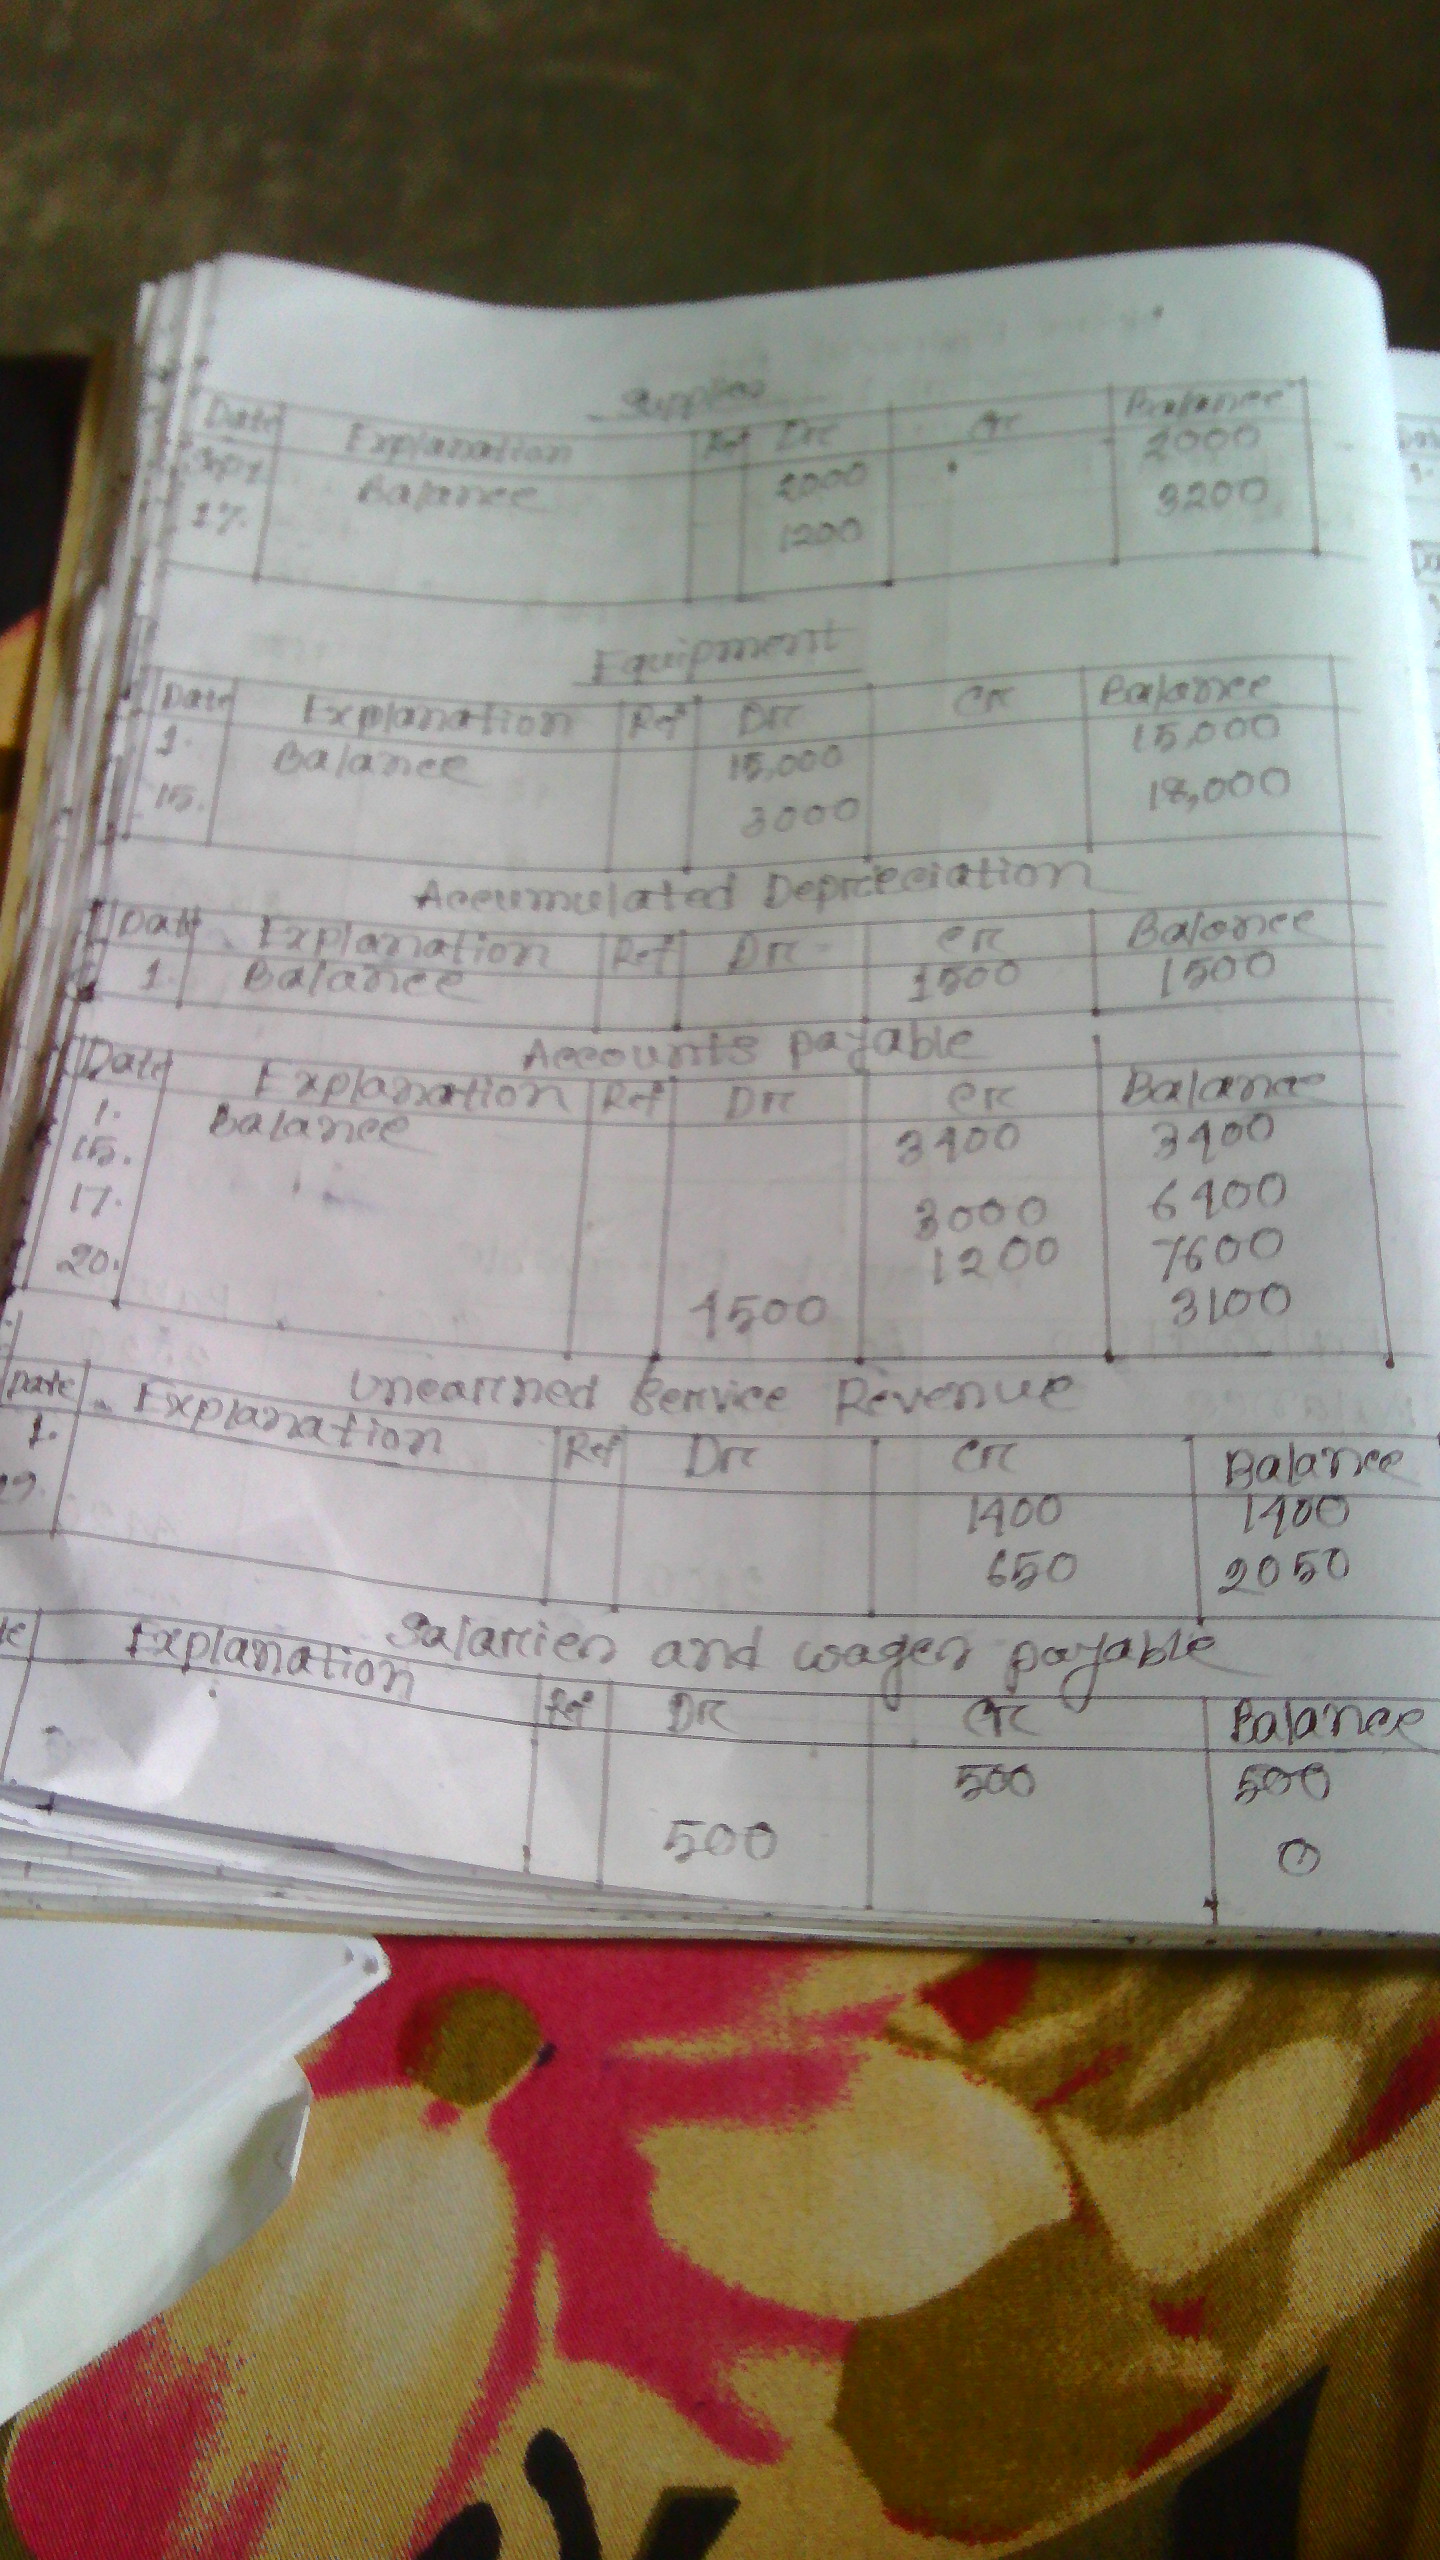 Supplies
Date Explanation Ref Dr Cr Balance
Balance 2000 2000
17. 1200 3200
Equipment
Date Explanation Ref Dr Cr Balance
1. Balance 15,000 15,000
15. 3000 18,000
Accumulated Depreciation
Date Explanation Ref Dr Cr Balance
1. Balance 1500 1500
Accounts payable
Date Explanation Ref Dr Cr Balance
1. Balance 3400 3400
15. 3000 6400
17. 1200 7600
20. 4500 3100
Unearned Service Revenue
Date Explanation Ref Dr Cr Balance
1. 1400 1400
29. 650 2050
Salaries and wages payable
Explanation Ref Dr Cr Balance
500 500
500 0